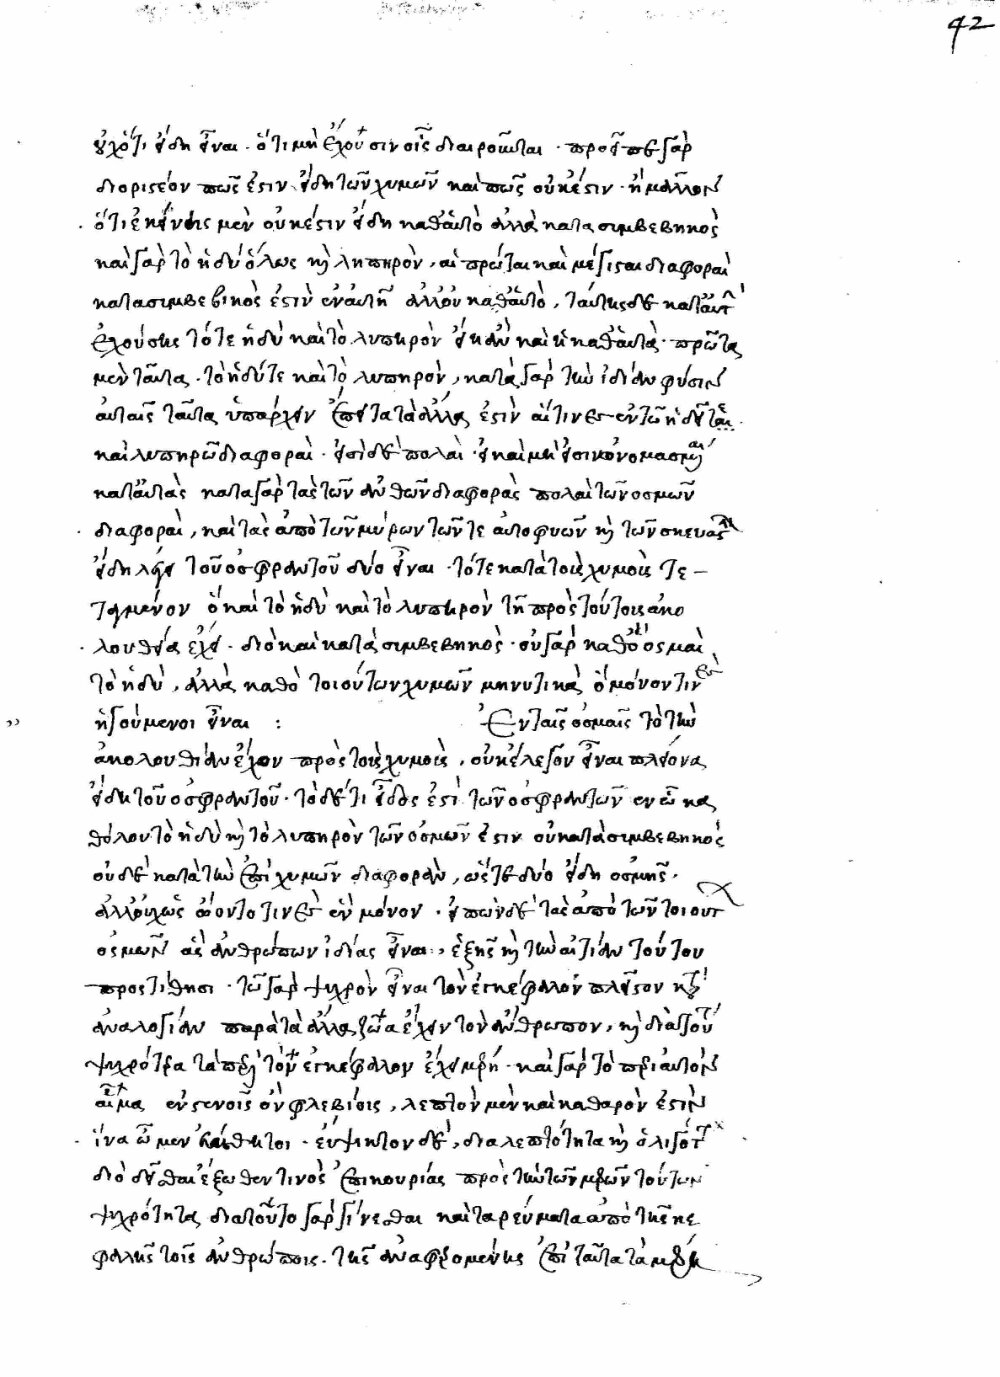 42
οὐχ ὅτι εἴδη εἶναι · ὅτι μὴ ἔχουσιν οἷς διαιροῦνται · πρόσεισι γὰρ
διοριστέον πῶς ἐστιν εἴδη τῶν χυμῶν καὶ πῶς οὐκ ἔστιν · ἢ μᾶλλον
ὅτι ἐκείνοις μὲν οὐκ ἔστιν εἴδη καθ' αὑτὸ ἀλλὰ κατὰ συμβεβηκὸς
καὶ γὰρ τὸ ἡδὺ ὅλως καὶ λυπηρὸν, αἱ πρῶται καὶ μέγισται διαφοραὶ
κατὰ συμβεβικὸς ἐστὶν ἐν αὐτῇ ἀλλ' οὐ καθ' αὑτὸ, ταύτης δὲ κατ' αὐτ
ἐχούσης τό τε ἡδὺ καὶ τὸ λυπηρὸν εἴη ἂν καὶ ἡ καθ' αὑτὰ · πρῶτα
μὲν ταῦτα · τὸ ἡδύ τε καὶ τὸ λυπηρὸν, κατὰ γὰρ τὴν ἰδίαν φύσιν
αὐταῖς ταῦτα ὑπάρχειν ἔπειτα τὰ ἄλλα ἐστὶν αἵτινες ἐν τῷ ἡδεῖ
καὶ λυπηρῷ διαφοραὶ · εἰσὶ δὲ πολλαὶ · εἰ καὶ μὴ εἰσὶ κονομασμ
κατ' αὐτὰς κατὰ γὰρ τὰς τῶν ἀνθῶν διαφορὰς πολλαὶ τῶν ὀσμῶν
διαφοραὶ, καὶ τὰς ἀπὸ τῶν μύρων τῶν τε αὐτοφυῶν καὶ τῶν σκευασ
εἴδη λέγει τοῦ ὀσφραντοῦ δύο εἶναι · τό τε κατὰ τοὺς χυμοὺς τε-
ταγμένον ὃ καὶ τὸ ἡδὺ καὶ τὸ λυπηρὸν τῇ πρὸς τούτους ἀκο
λουθία ἔχει · διὸ καὶ κατὰ συμβεβηκὸς · οὐ γὰρ καθὸ ὀσμαὶ
τὸ ἡδὺ, ἀλλὰ καθὸ τοιούτων χυμῶν μηνυτικὰ ὃ μόνον τινὲς
ἡγούμενοι εἶναι : Ἐν ταῖς ὀσμαῖς τὸ τὴν
ἀκολουθίαν ἔχον πρὸς τοὺς χυμοὺς, οὐκ ἔλεγον εἶναι πλείονα
εἴδη τοῦ ὀσφραντοῦ · τὸ δέ τι εἶδός ἐστι τῶν ὀσφραντῶν ἐν ᾧ κα
θόλου τὸ ἡδὺ καὶ τὸ λυπηρὸν τῶν ὀσμῶν ἐστιν οὐ κατὰ συμβεβηκὸς
οὐδὲ κατὰ τὴν ἐπὶ χυμῶν διαφορὰν, ὥστε δύο εἴδη ὀσμῆς ·
ἀλλ' οὐχ ὡς ᾤοντό τινες ἓν μόνον · εἰπὼν δὲ τὰς ἀπὸ τῶν τοιουτ
ὀσμῶν ὡς ἀνθρώπων ἰδίας εἶναι, ἑξῆς καὶ τὴν αἰτίαν τούτου
προστίθησι · τῷ γὰρ ψυχρὸν εἶναι τὸν ἐγκέφαλον πλεῖστον κατ'
ἀναλογίαν παρὰ τὰ ἄλλα ζῷα ἔχειν τὸν ἄνθρωπον, καὶ διὰ τοῦ
ψυχρότερα τὰ περὶ τὸν ἐγκέφαλον ἔχει μέρη · καὶ γὰρ τὸ περὶ αὐτὸν
αἷμα ἐν στενοῖς ὂν φλεβίοις, λεπτὸν μὲν καὶ καθαρὸν ἐστὶν
ἵνα ᾖ μὲν αἴσθητοι · εὔψυκτον δὲ, διὰ λεπτότητα καὶ ὀλιγότ
διὸ δεῖσθαι ἔξωθέν τινος ἐπικουρίας πρὸς τὴν τῶν μερῶν τούτων
ψυχρότητα διὰ τοῦτο γὰρ γίνεσθαι καὶ τὰ ῥεύματα ἀπὸ τῆς κε
φαλῆς τοῖς ἀνθρώποις · τῆς ἀναφερομένης ἐπὶ ταῦτα τὰ μέρη